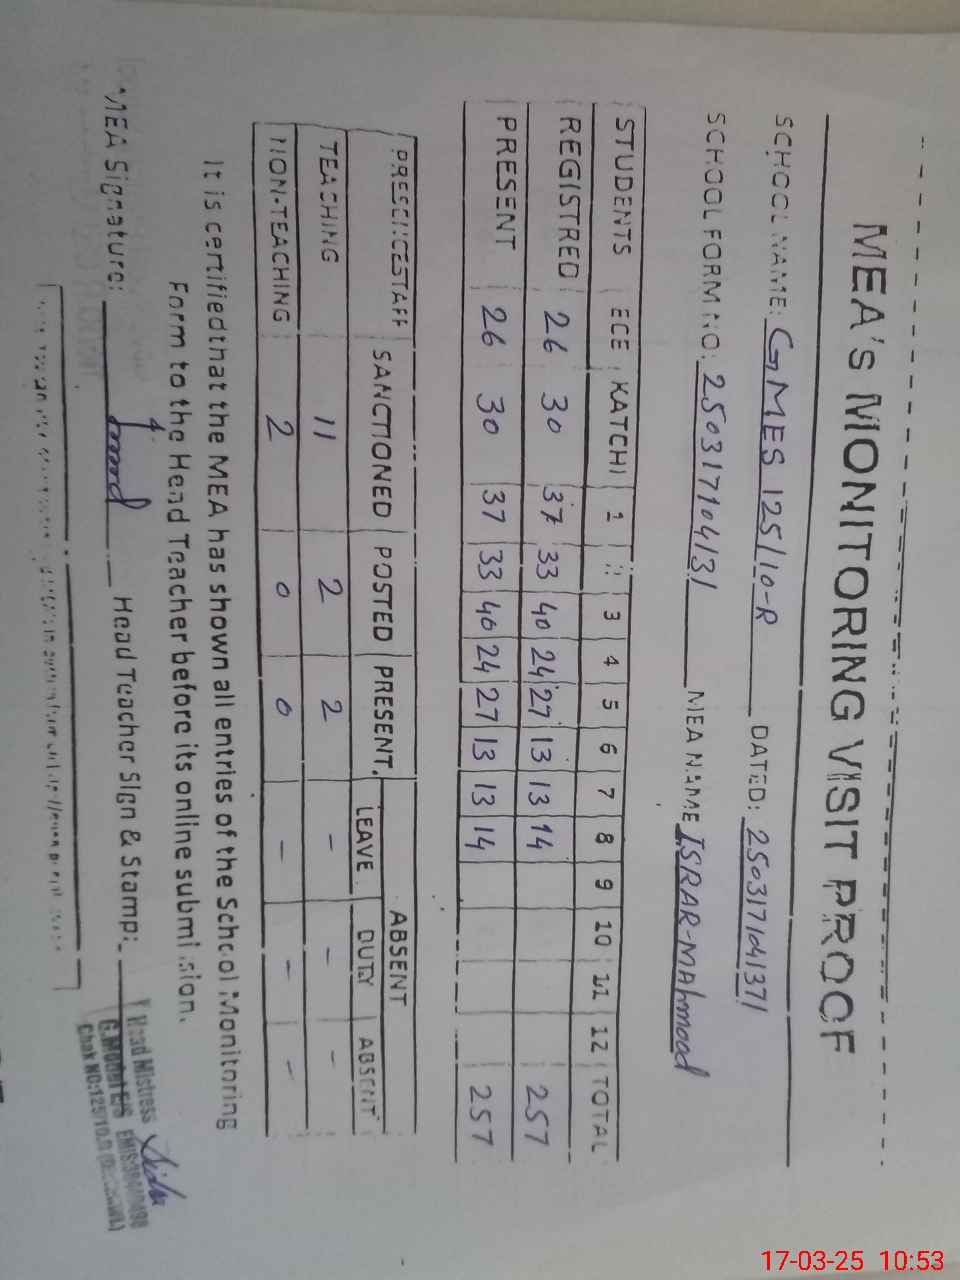 MEA'S MONITORING VISIT PROOF
SCHOOL NAME: GMES 125/10-R DATED: 250317/041371
SCHOOL FORM NO: 2503171041371 MEA NAME ISRAR-MAhmood
STUDENTS ECE KATCHI 1 3 4 5 6 7 8 9 10 11 12 TOTAL
REGISTRED 26 30 37 33 40 24 27 13 13 14 257
PRESENT 26 30 37 33 40 24 27 13 13 14 257
PRESENCE STAFF SANCTIONED POSTED PRESENT ABSENT
LEAVE DUTY ABSENT
TEACHING 11 2 2 - - -
NON-TEACHING 2 0 0 - - -
It is certified that the MEA has shown all entries of the School Monitoring
Form to the Head Teacher before its online submission.
MEA Signature: Head Teacher Sign & Stamp:
Head Mistress
G.Model E/S
Chak NO:125/10.R
17-03-25 10:53